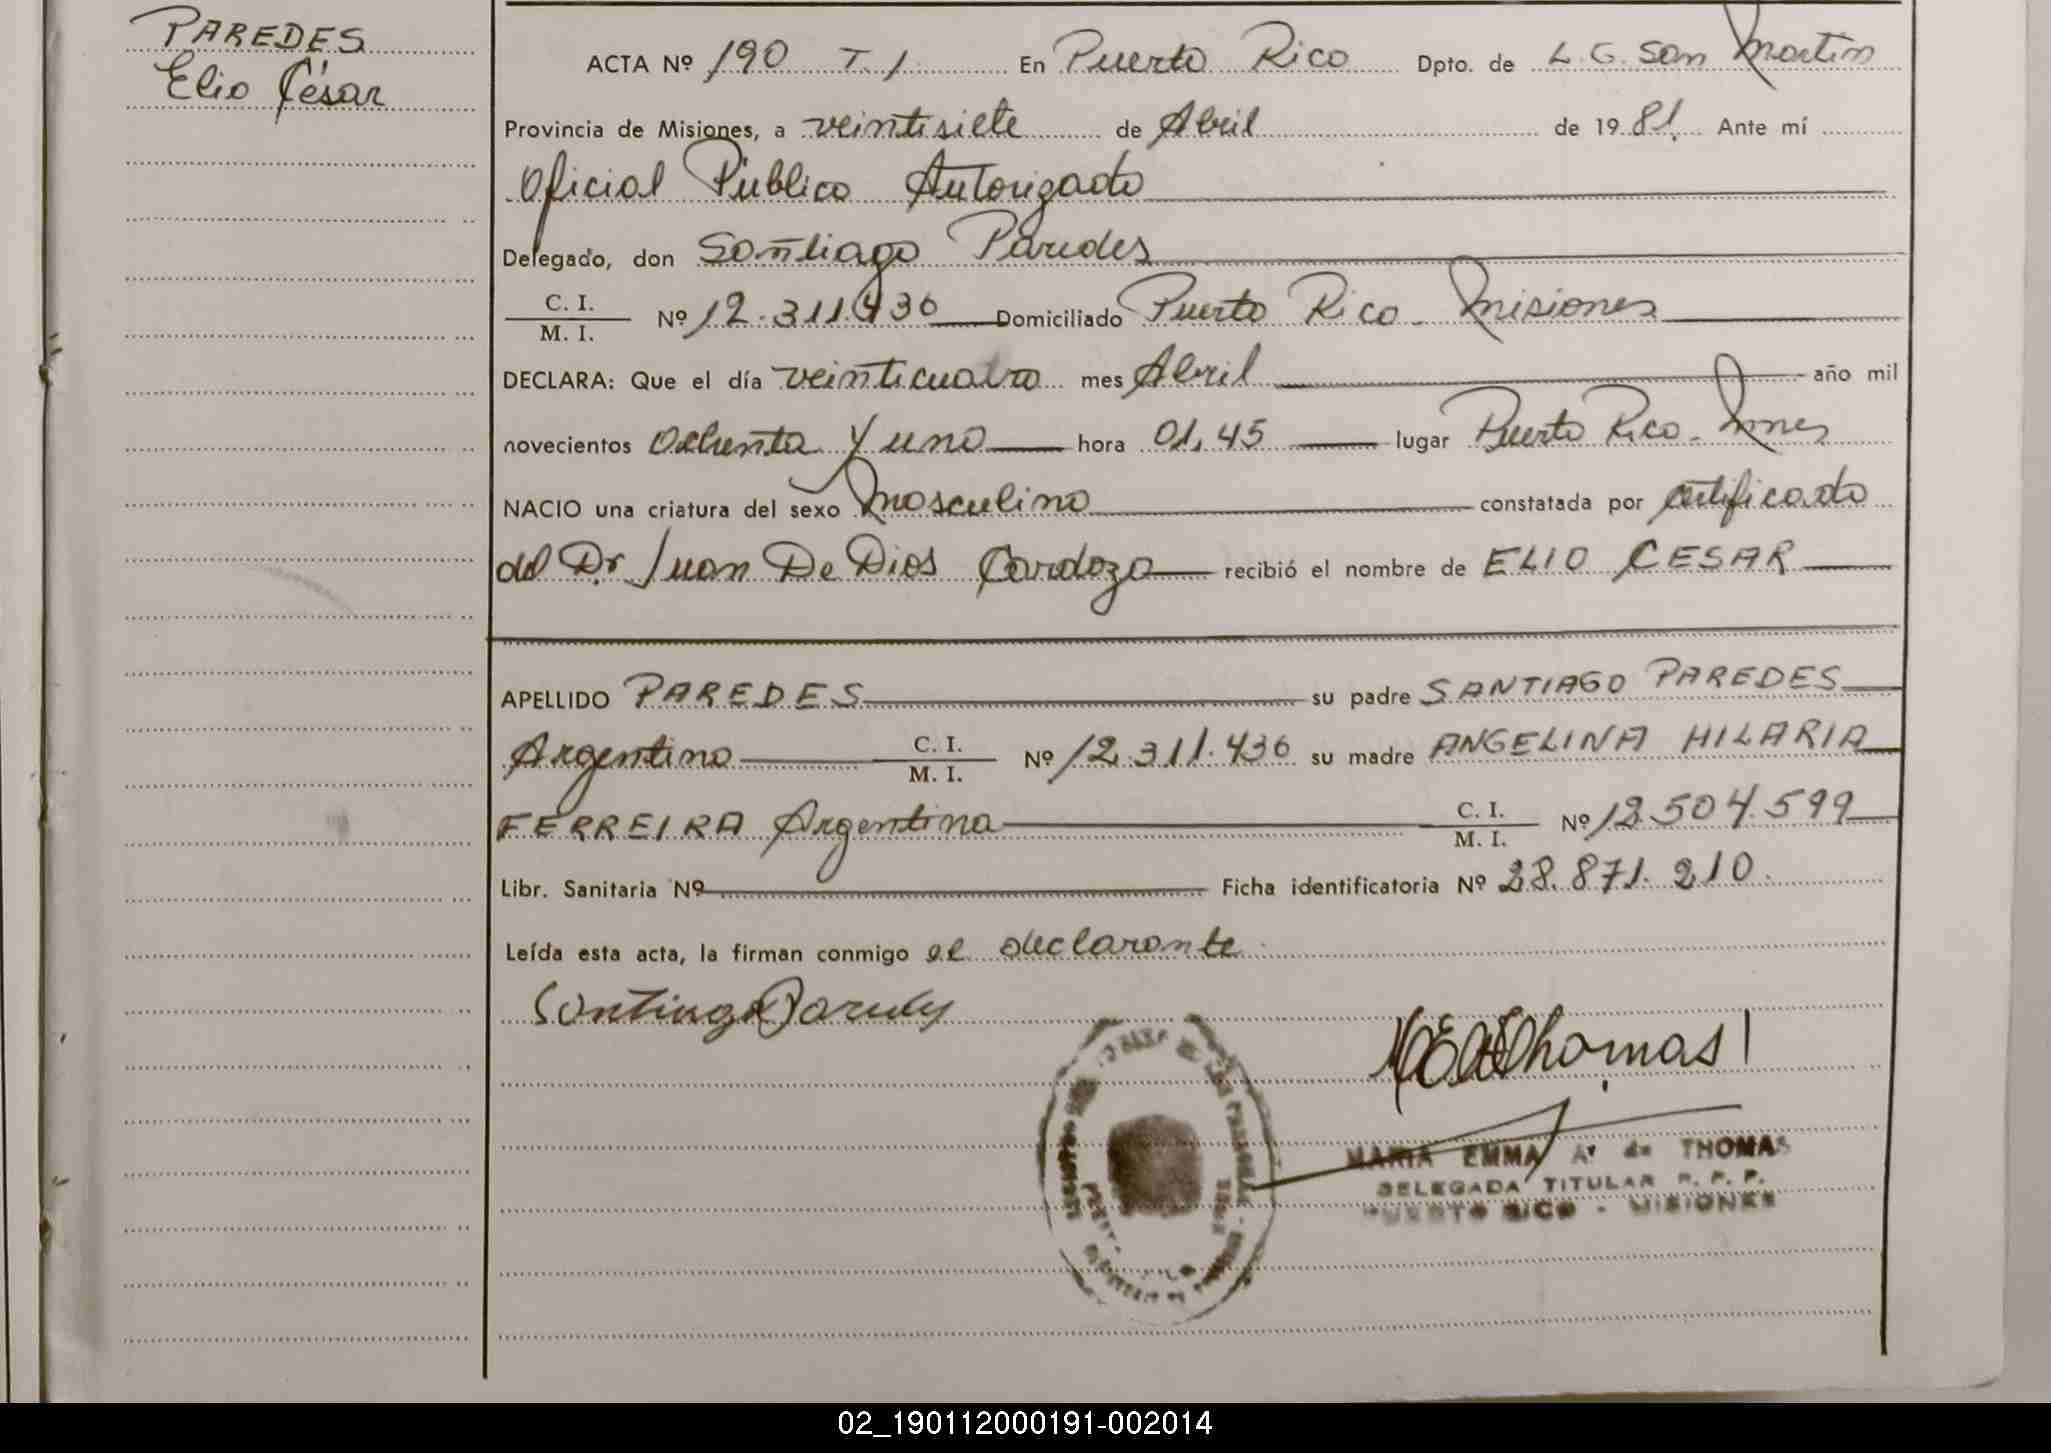 PAREDES
Elio César
ACTA Nº 190 T. 1 En Puerto Rico Dpto. de L. G. San Martin
Provincia de Misiones, a veintisiete de Abril de 1981. Ante mí
Oficial Público Autorizado
Delegado, don Santiago Paredes
C. I.
M. I. Nº 12.311.436 Domiciliado Puerto Rico - Misiones
DECLARA: Que el día veinticuatro mes Abril año mil
novecientos Ochenta y uno hora 01,45 lugar Puerto Rico - Mnes
NACIO una criatura del sexo masculino constatada por certificado
del Dr Juan De Dios Cardozo recibió el nombre de ELIO CESAR
APELLIDO PAREDES su padre SANTIAGO PAREDES
Argentino C. I.
M. I. Nº 12.311.436 su madre ANGELINA HILARIA
FERREIRA Argentina C. I.
M. I. Nº 12.504.599
Libr. Sanitaria Nº Ficha identificatoria Nº 28.871.210.
Leída esta acta, la firman conmigo el declarante
Santiago Paredes
MEAdThomas
MARIA EMMA A. de THOMAS
DELEGADA TITULAR R. P. P.
PUERTO RICO - MISIONES
02_190112000191-002014